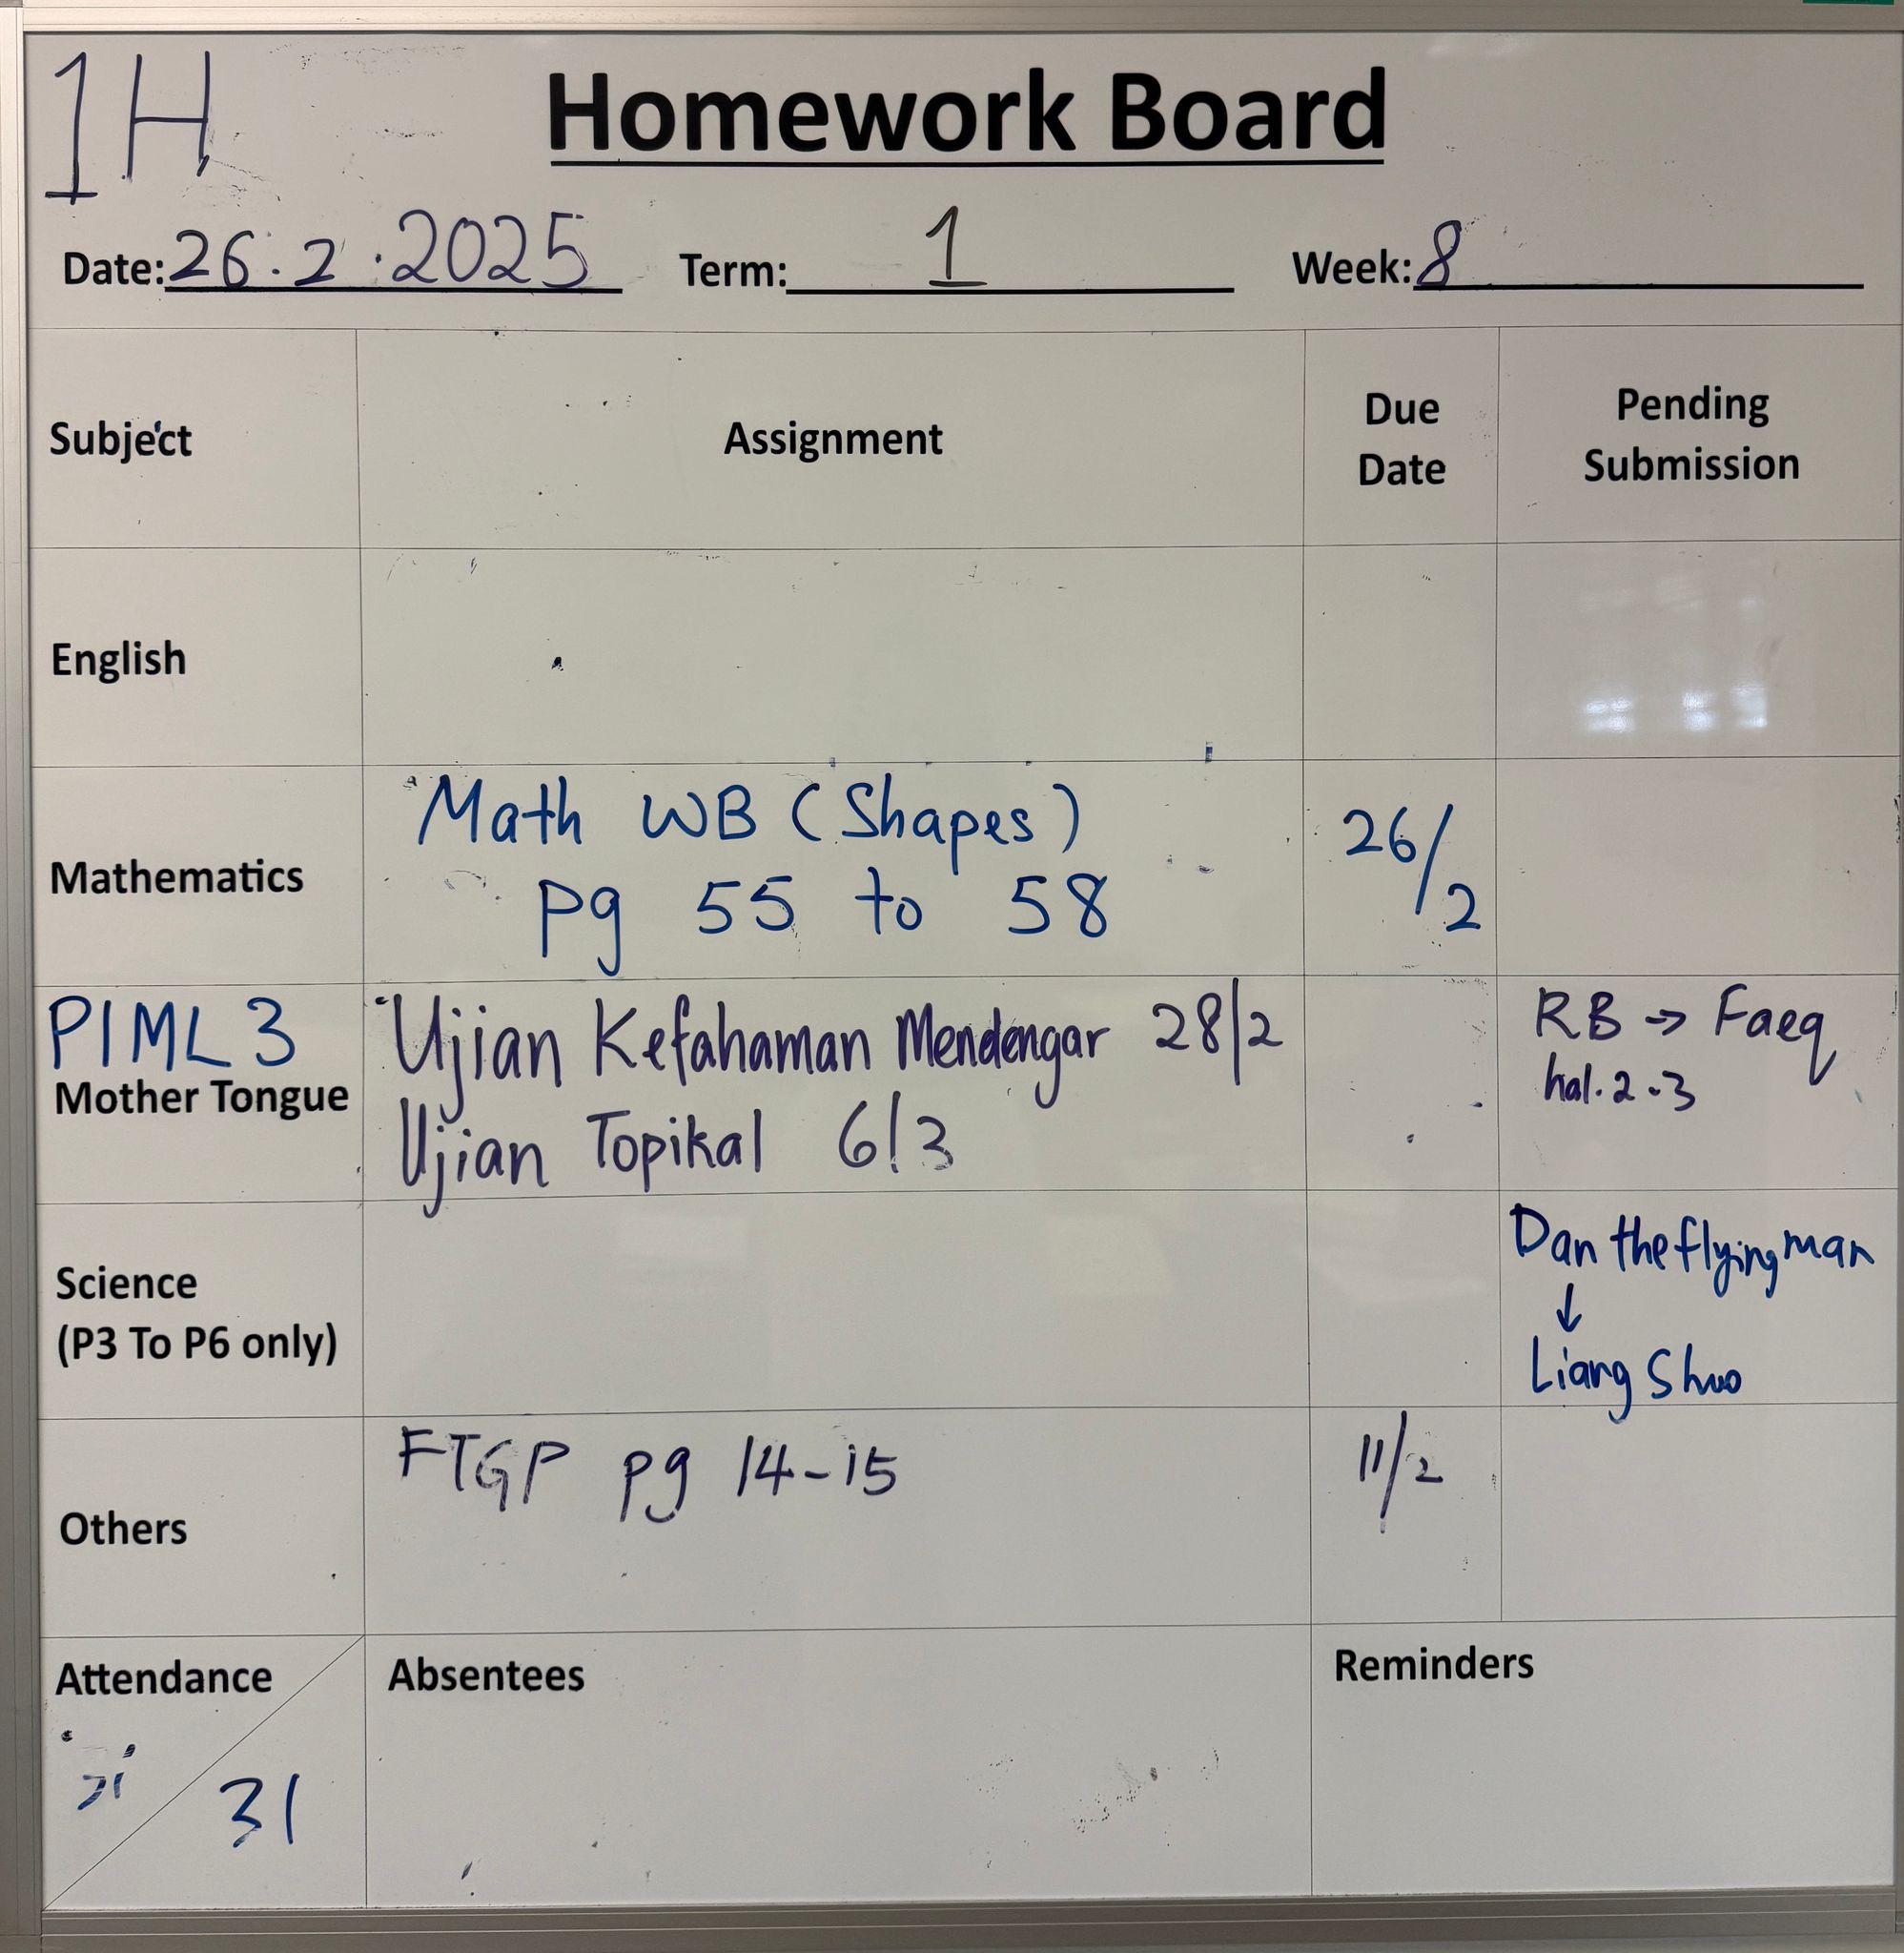 1H
Homework Board
Date: 26.2.2025 Term: 1 Week: 8
Subject Assignment Due Date Pending Submission
English
Mathematics
Math WB (Shapes)
pg 55 to 58
26/2
P1ML3
Mother Tongue
Ujian Kefahaman Mendengar 28/2
Ujian Topikal 6/3
RB → Faeq
hal. 2-3
Science
(P3 To P6 only)
Dan the flying man
↓
Liang Shuo
Others
FTGP pg 14-15
11/2
Attendance
31
Absentees
Reminders